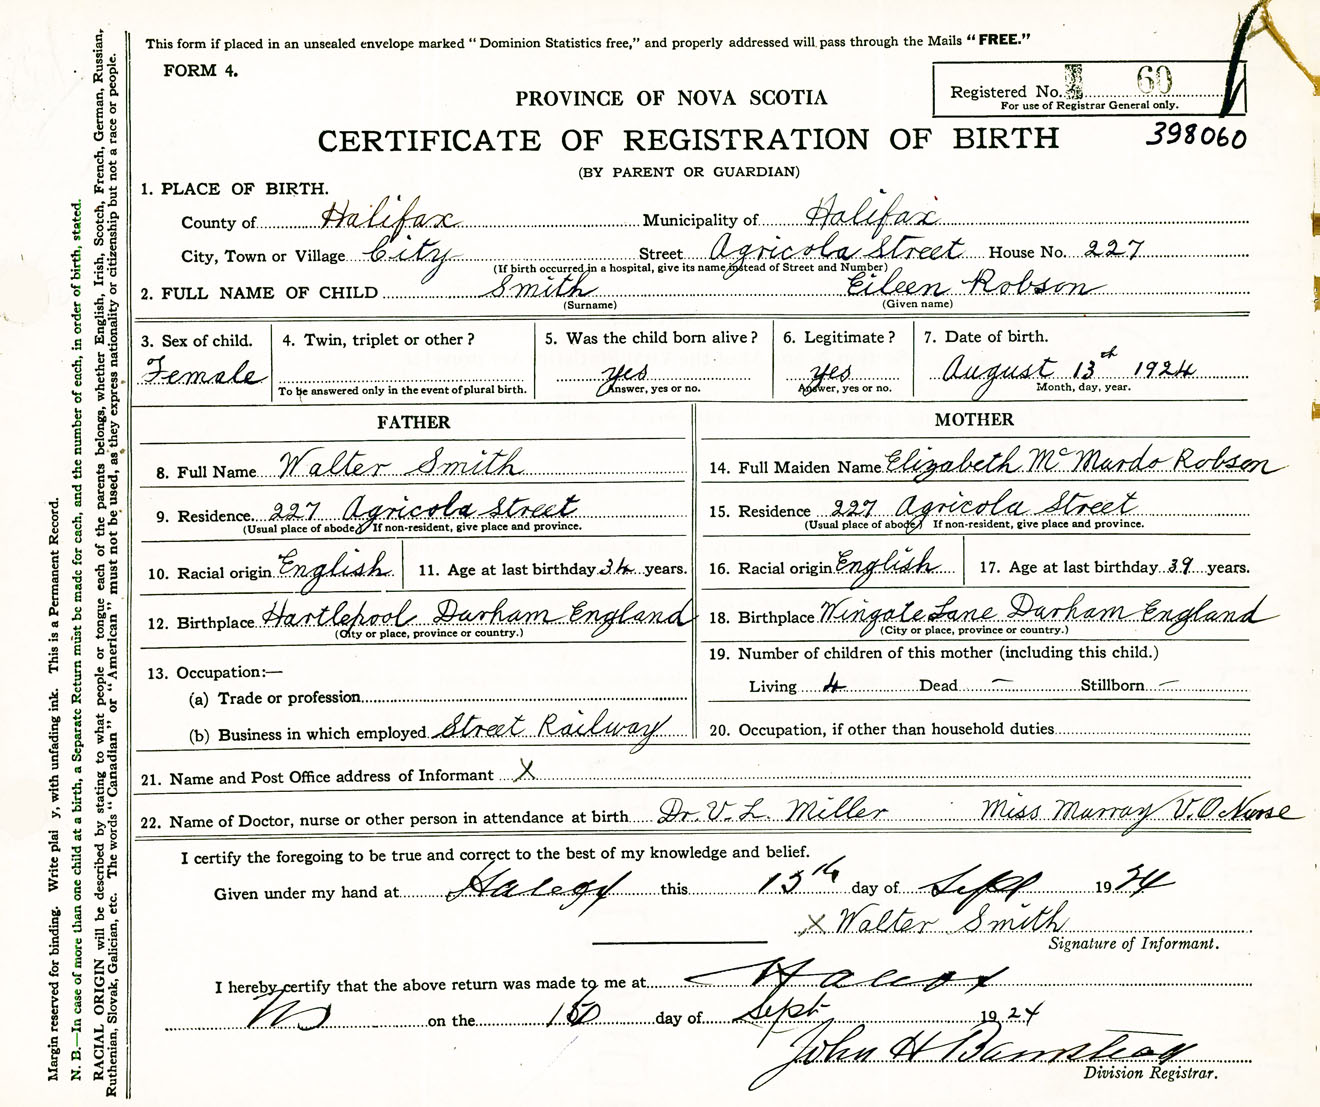 This form if placed in an unsealed envelope marked "Dominion Statistics free," and properly addressed will pass through the Mails "FREE."
FORM 4.
Registered No. 60
For use of Registrar General only.
PROVINCE OF NOVA SCOTIA
CERTIFICATE OF REGISTRATION OF BIRTH
398060
(BY PARENT OR GUARDIAN)
1. PLACE OF BIRTH.
County of Halifax Municipality of Halifax
City, Town or Village City Street Agricola Street House No. 227
(If birth occurred in a hospital, give its name instead of Street and Number)
2. FULL NAME OF CHILD Smith Eileen Robson
(Surname) (Given name)
3. Sex of child. 4. Twin, triplet or other? 5. Was the child born alive? 6. Legitimate? 7. Date of birth.
Female yes yes August 13th 1924
To be answered only in the event of plural birth. Answer, yes or no. Answer, yes or no. Month, day, year.
FATHER
8. Full Name Walter Smith
9. Residence. 227 Agricola Street
(Usual place of abode) If non-resident, give place and province.
10. Racial origin English 11. Age at last birthday 34 years.
12. Birthplace Hartlepool Durham England
(City or place, province or country.)
13. Occupation:—
(a) Trade or profession
(b) Business in which employed Street Railway
MOTHER
14. Full Maiden Name Elizabeth Mc Murdo Robson
15. Residence 227 Agricola Street
(Usual place of abode) If non-resident, give place and province.
16. Racial origin English 17. Age at last birthday 39 years.
18. Birthplace Wingate Lane Durham England
(City or place, province or country.)
19. Number of children of this mother (including this child.)
Living 4 Dead — Stillborn —
20. Occupation, if other than household duties
21. Name and Post Office address of Informant X
22. Name of Doctor, nurse or other person in attendance at birth Dr. V. L. Miller Miss Murray V.O. Nurse
I certify the foregoing to be true and correct to the best of my knowledge and belief.
Given under my hand at this 13th day of Sept 1924
X Walter Smith
Signature of Informant.
I hereby certify that the above return was made to me at
on the day of Sept 1924
John H
Division Registrar.
Margin reserved for binding. Write plai y, with unfading ink. This is a Permanent Record.
N. B.—In case of more than one child at a birth, a Separate Return must be made for each, and the number of each, in order of birth, stated.
RACIAL ORIGIN will be described by stating to what people or tongue each of the parents belongs, whether English, Irish, Scotch, French, German, Russian,
Ruthenian, Slovak, Galician, etc. The words "Canadian" or "American" must not be used, as they express nationality or citizenship but not a race or people.